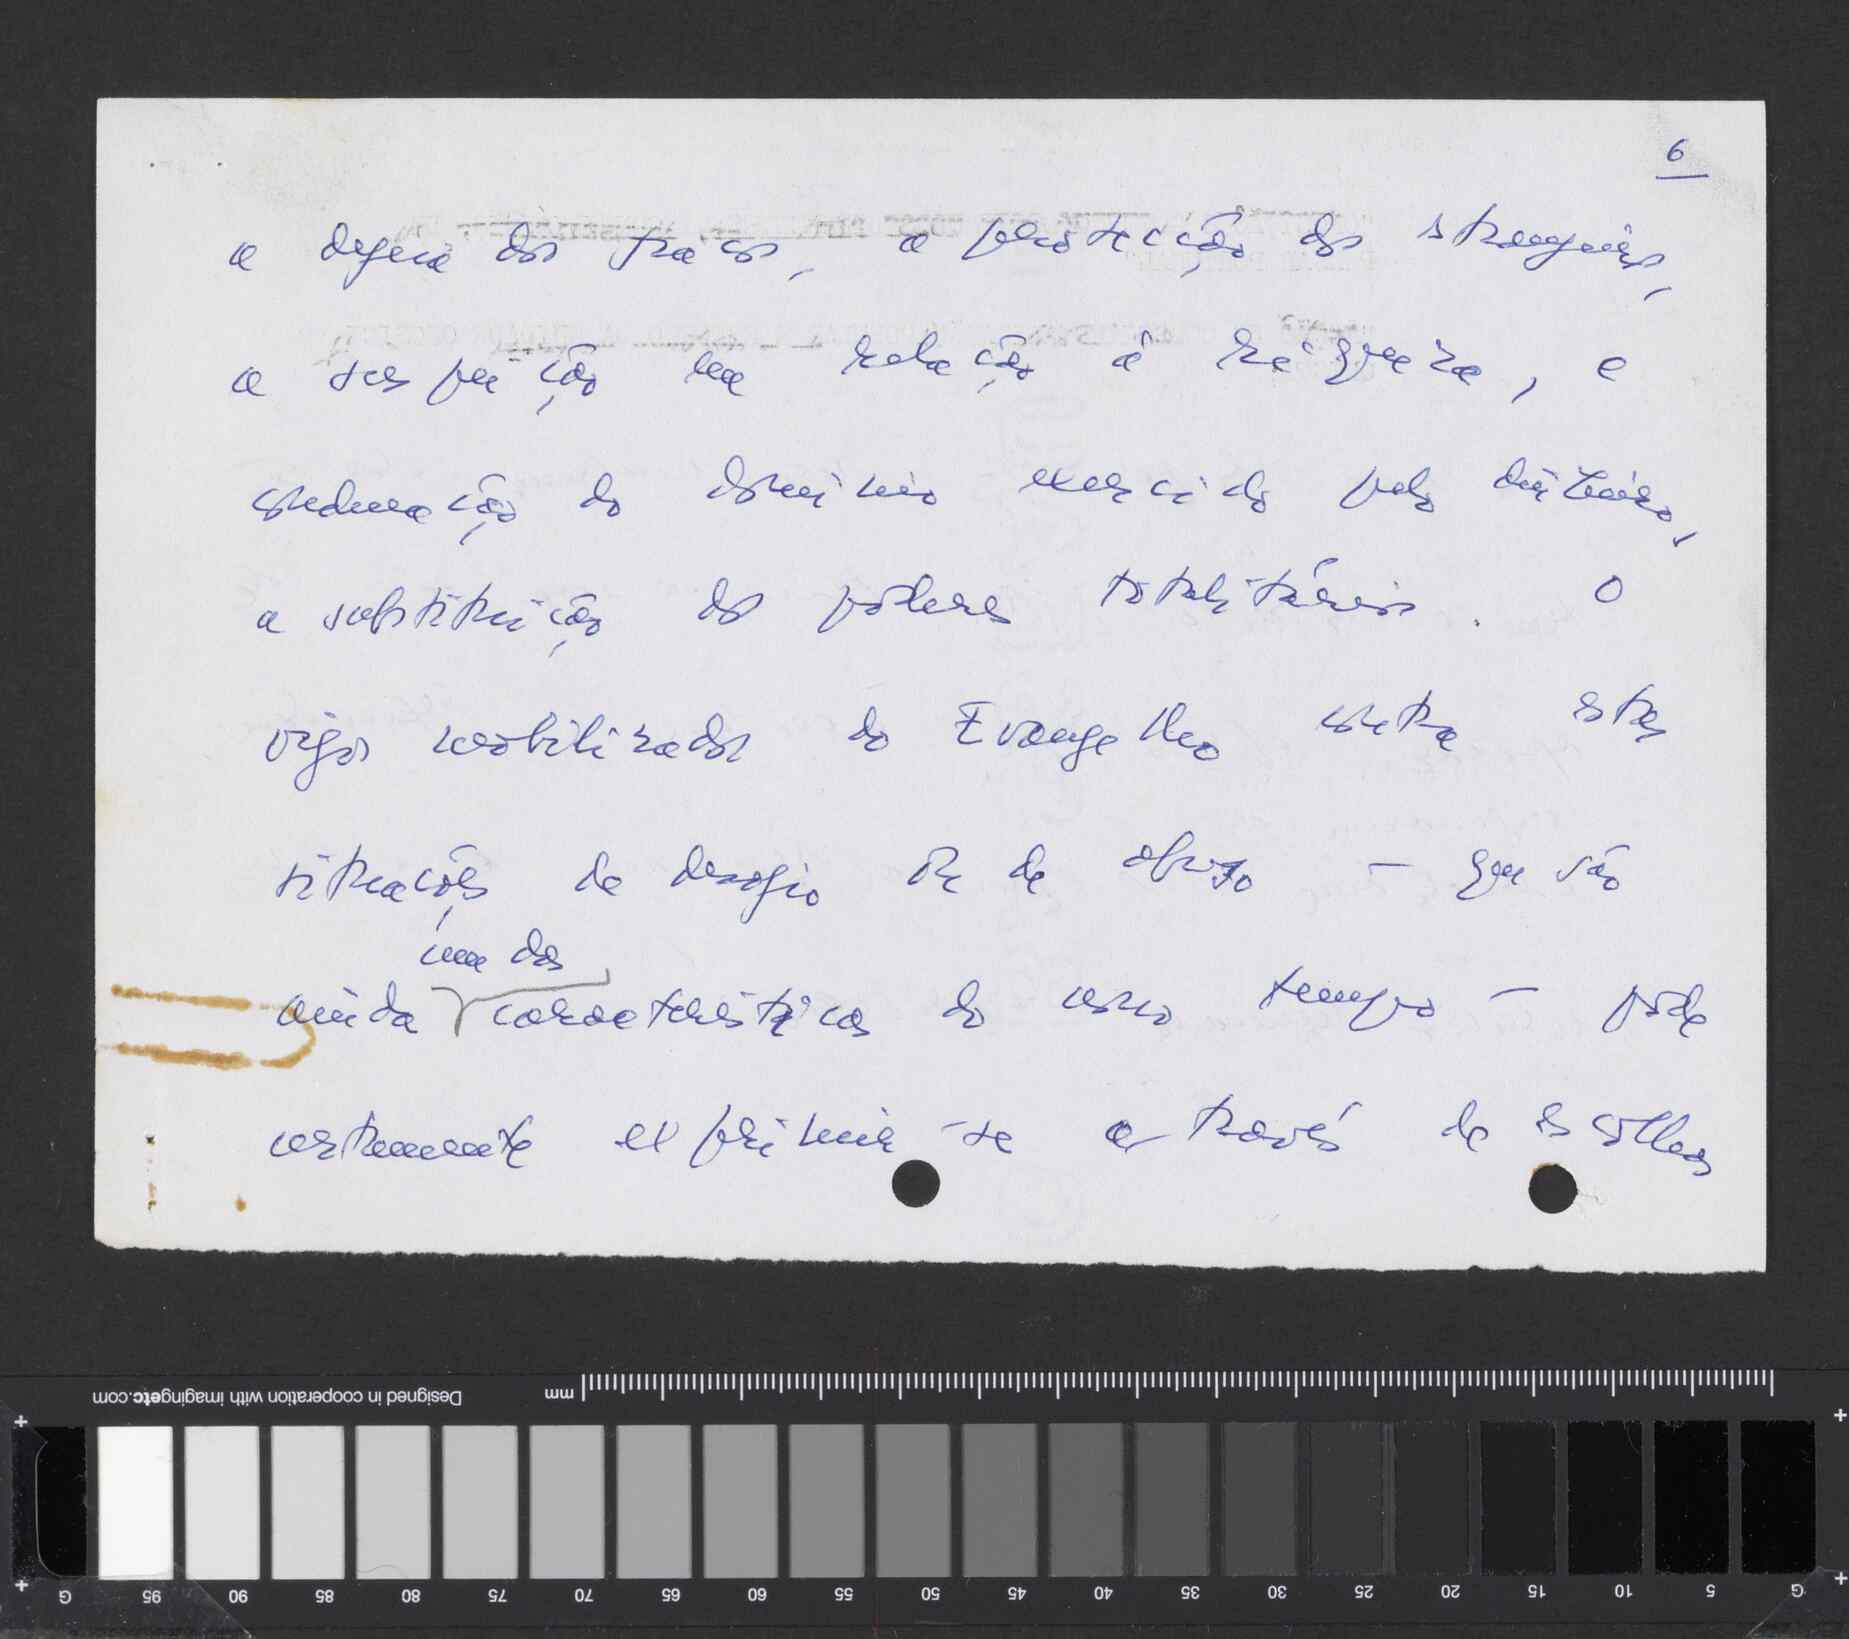 6
a defesa dos fracos, a protecção dos estrangeiros,
a suspeição na relação à riqueza, a
condenação do domínio exercido pelo dinheiro,
a substituição dos poderes totalitários. O
vigor mobilizador do Evangelho contra estas
situações de desafio ou de abuso – que são
uma das
ainda características do nosso tempo – pode
certamente exprimir-se através de escolhas
mm
Designed in cooperation with imagingetc.com
G 95 90 85 80 75 70 65 60 55 50 45 40 35 30 25 20 15 10 5 G